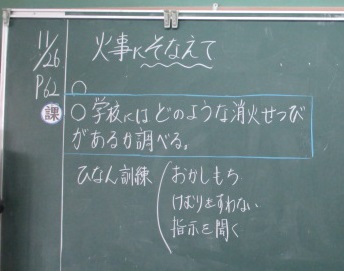 11/26
火事にそなえて
P62
○
課
○学校にはどのような消火せつび
があるか調べる。
ひなん訓練
おかしもち
けむりをすわない
指示を聞く